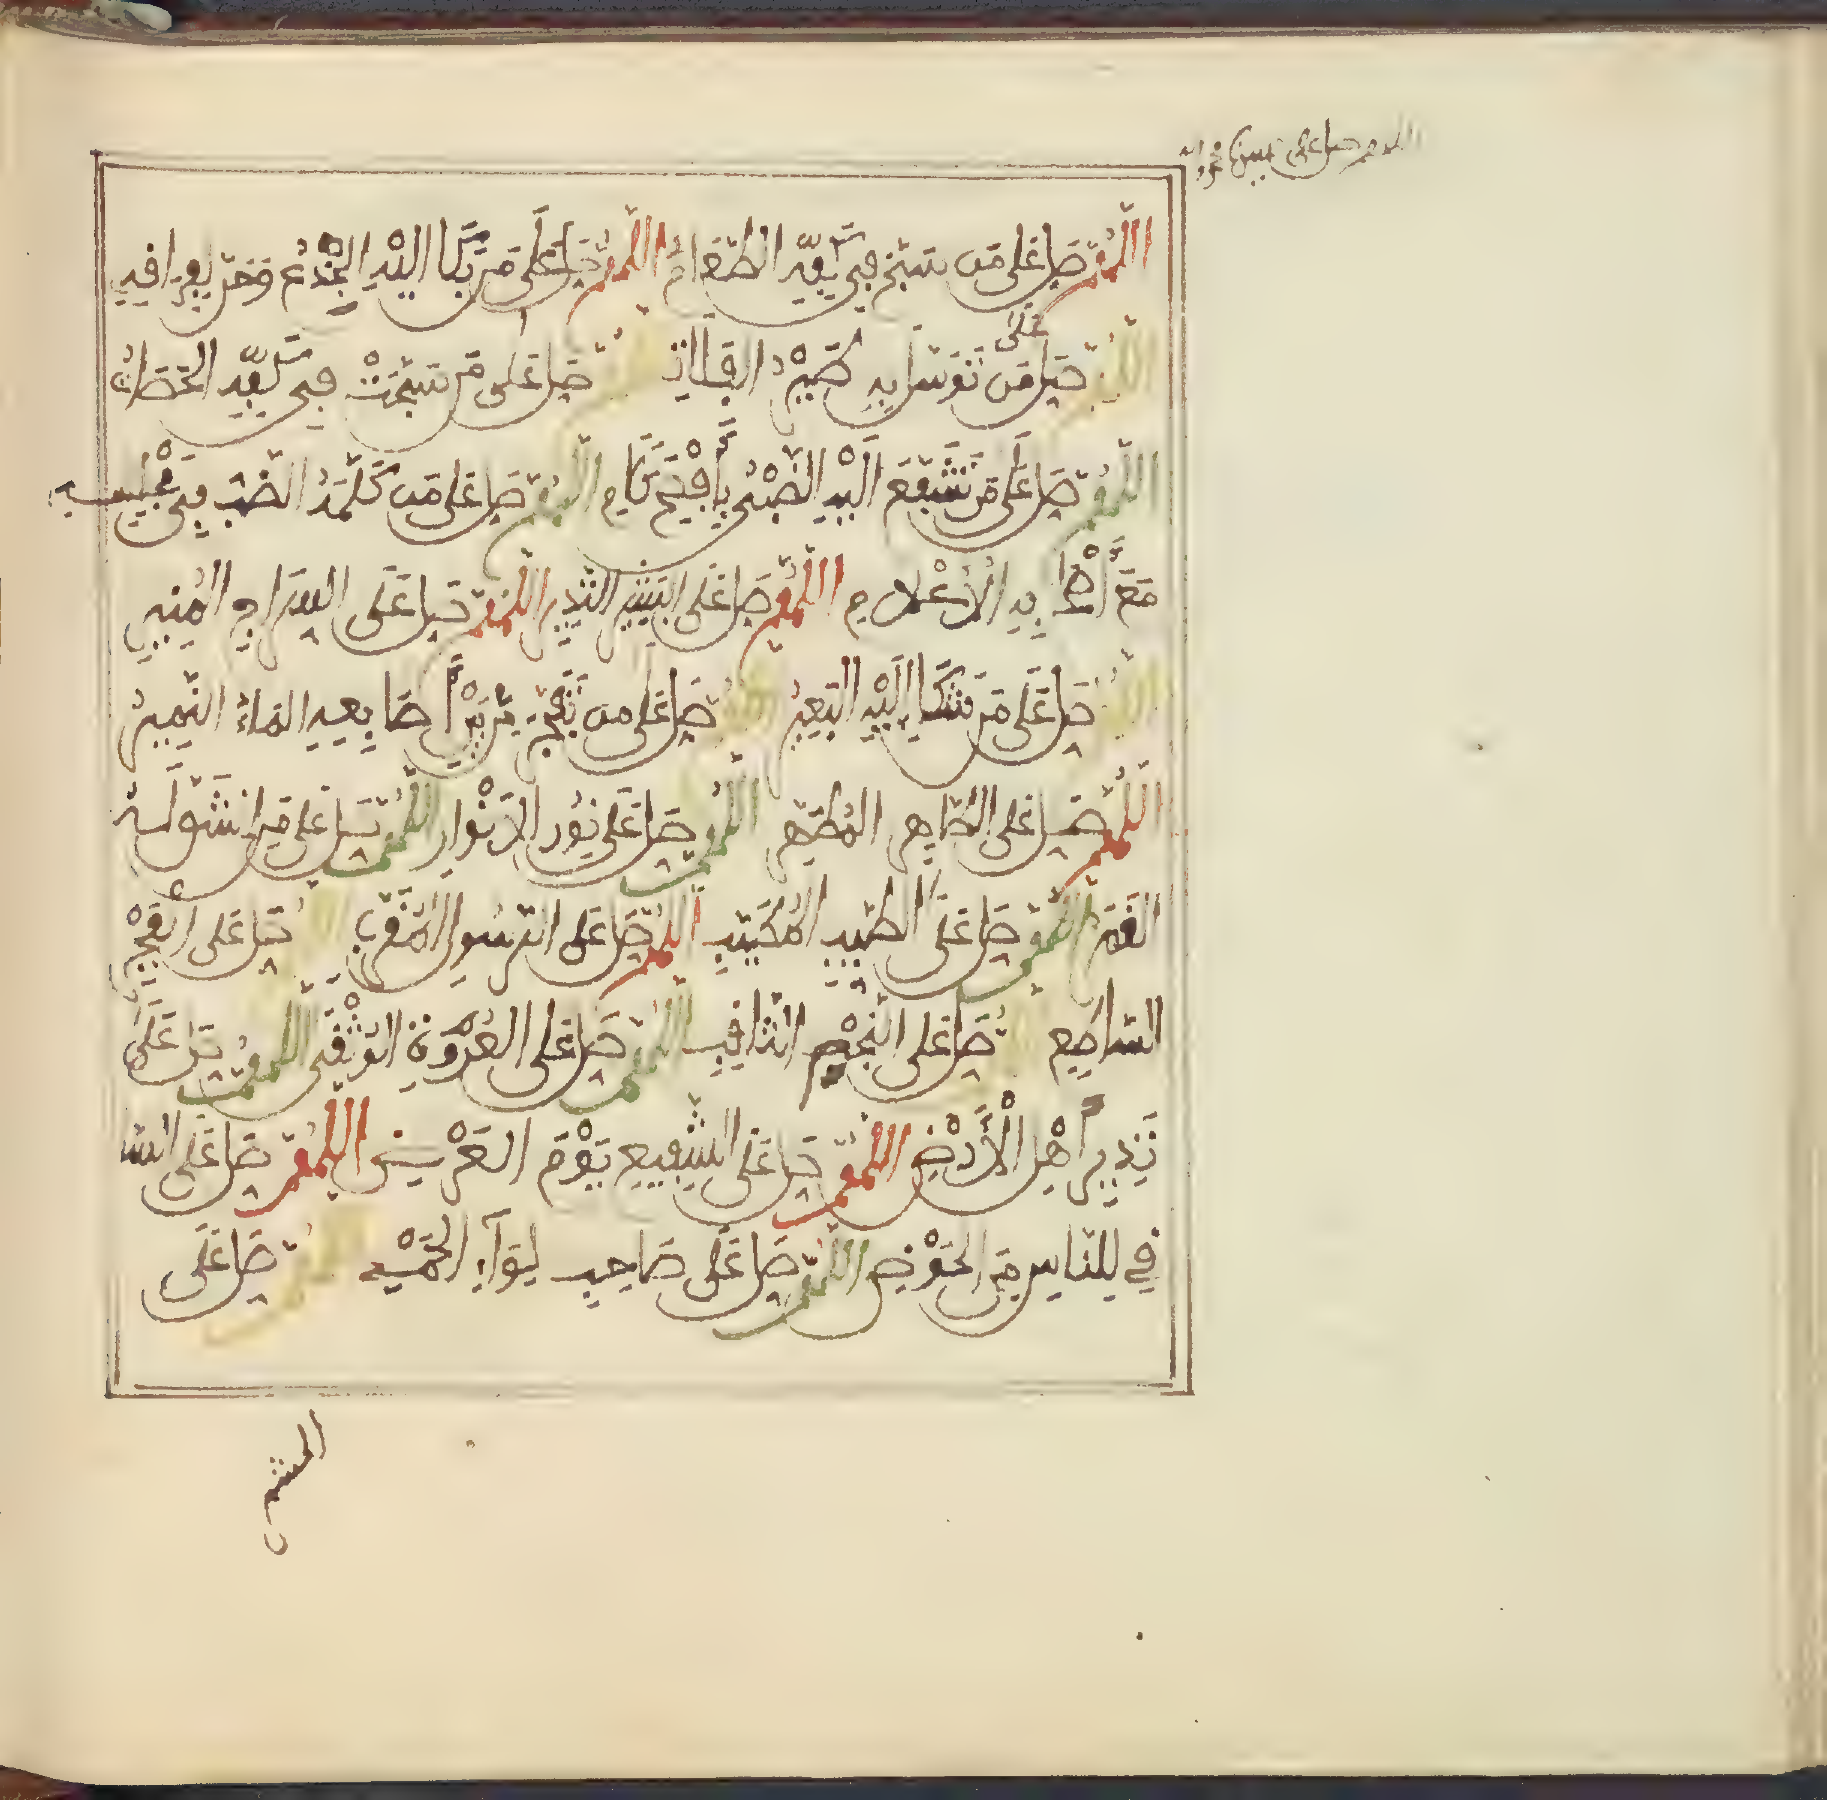 اللهم صل على سيدنا محمد وا
اللَّهُمَّ صَلِّ عَلَى مَنْ سَبَّحَ فِي كَفِّهِ الطَّعَامُ اللَّهُمَّ صَلِّ عَلَى مَنْ بَكَا إِلَيْهِ الْجِذْعُ وَحَنَّ لِفِرَاقِهِ
اللَّهُمَّ صَلِّ عَلَى مَنْ تَوَسَّلَ بِهِ طَيْرُ الْفَلَاةِ اللَّهُمَّ صَلِّ عَلَى مَنْ سَبَّحَتْ فِي كَفِّهِ الْحَصَاةُ
اللَّهُمَّ صَلِّ عَلَى مَنْ تَشَفَّعَ إِلَيْهِ الظَّبْيُ بِأَفْصَحِ كَلَامٍ اللَّهُمَّ صَلِّ عَلَى مَنْ كَلَّمَهُ الضَّبُّ فِي مَجْلِسِهِ
مَعَ أَصْحَابِهِ الْأَعْلَامِ اللَّهُمَّ صَلِّ عَلَى الْبَشِيرِ النَّذِيرِ اللَّهُمَّ صَلِّ عَلَى السِّرَاجِ الْمُنِيرِ
اللَّهُمَّ صَلِّ عَلَى مَنْ شَكَا إِلَيْهِ الْبَعِيرُ اللَّهُمَّ صَلِّ عَلَى مَنْ تَفَجَّرَ مِنْ بَيْنِ أَصَابِعِهِ الْمَاءُ النَّمِيرُ
اللَّهُمَّ صَلِّ عَلَى الطَّاهِرِ الْمُطَهَّرِ اللَّهُمَّ صَلِّ عَلَى نُورِ الْأَنْوَارِ اللَّهُمَّ صَلِّ عَلَى مَنِ انْشَقَّ لَهُ
الْقَمَرُ اللَّهُمَّ صَلِّ عَلَى الطَّيِّبِ الْمُطَيَّبِ اللَّهُمَّ صَلِّ عَلَى الرَّسُولِ الْمُقَرَّبِ اللَّهُمَّ صَلِّ عَلَى الْفَجْرِ
السَّاطِعِ اللَّهُمَّ صَلِّ عَلَى النَّجْمِ الثَّاقِبِ اللَّهُمَّ صَلِّ عَلَى الْعُرْوَةِ الْوُثْقَى اللَّهُمَّ صَلِّ عَلَى
نَذِيرِ أَهْلِ الْأَرْضِ اللَّهُمَّ صَلِّ عَلَى الشَّفِيعِ يَوْمَ الْعَرْضِ اللَّهُمَّ صَلِّ عَلَى السَّا
قِي لِلنَّاسِ مِنَ الْحَوْضِ اللَّهُمَّ صَلِّ عَلَى صَاحِبِ لِوَاءِ الْحَمْدِ اللَّهُمَّ صَلِّ عَلَى
المشمر